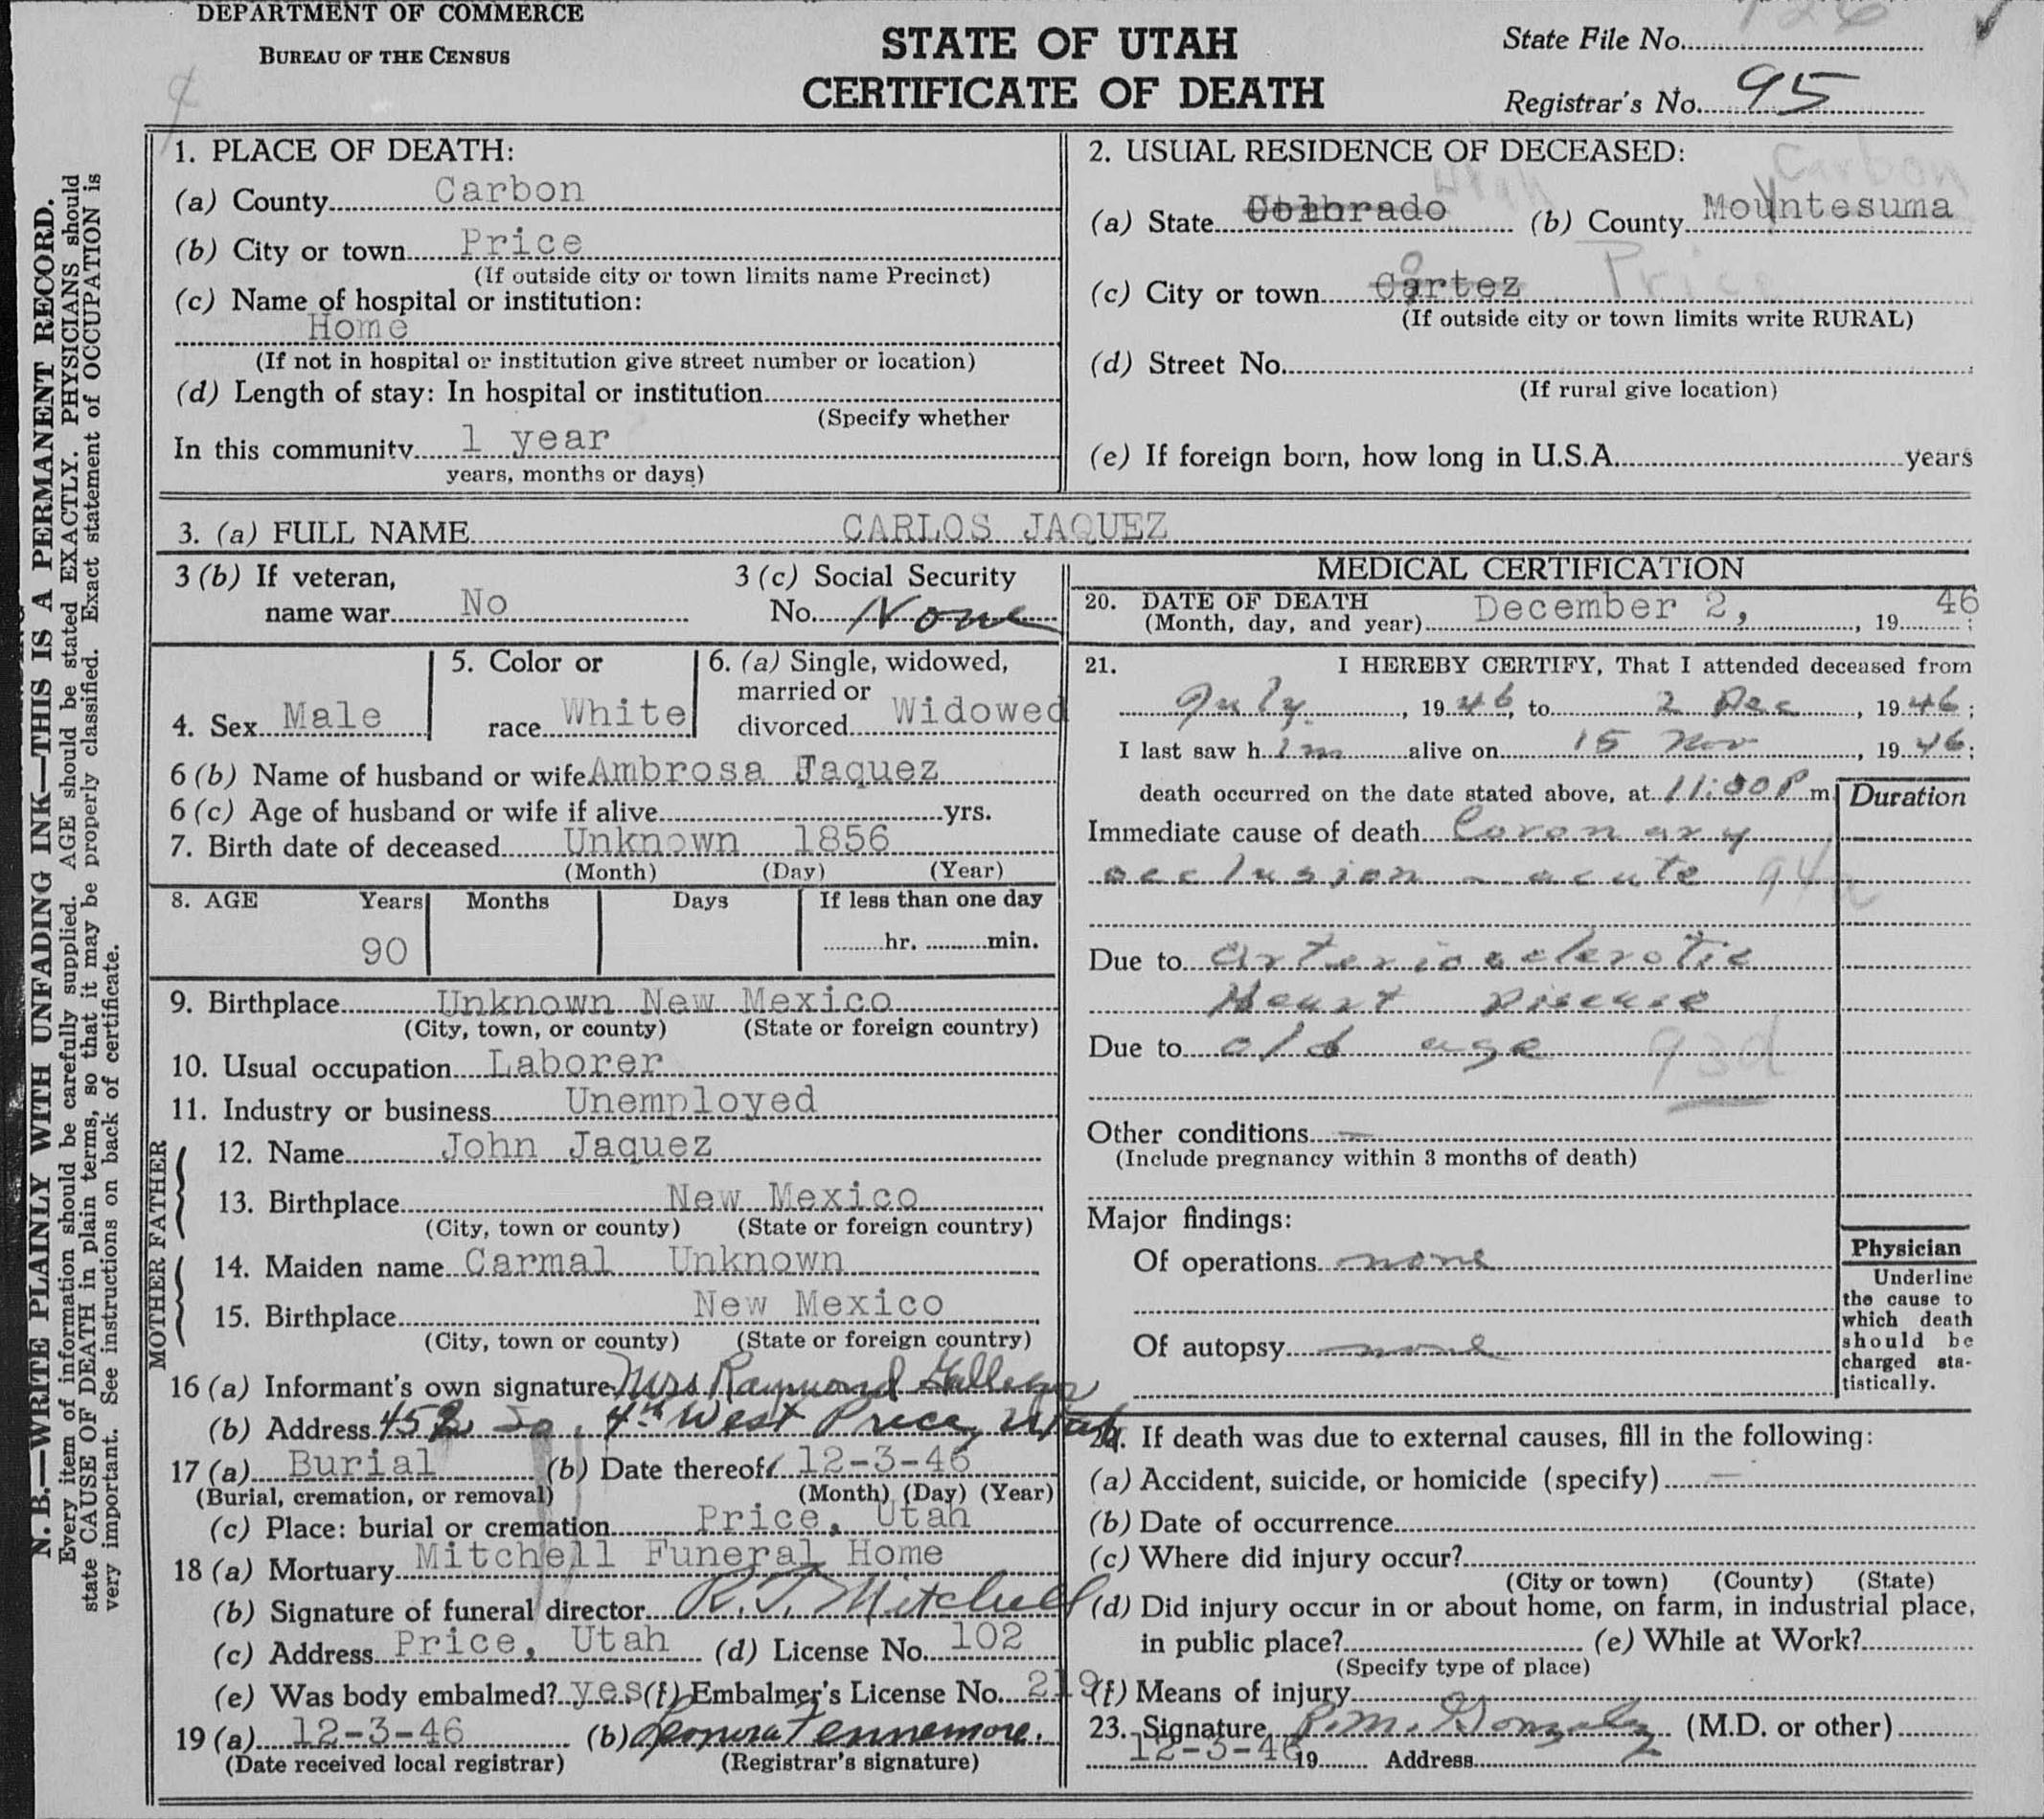 DEPARTMENT OF COMMERCE
BUREAU OF THE CENSUS
STATE OF UTAH
CERTIFICATE OF DEATH
State File No.
Registrar's No. 95
N. B.—WRITE PLAINLY WITH UNFADING INK—THIS IS A PERMANENT RECORD.
Every item of information should be carefully supplied. AGE should be stated EXACTLY. PHYSICIANS should
state CAUSE OF DEATH in plain terms, so that it may be properly classified. Exact statement of OCCUPATION is
very important. See instructions on back of certificate.
1. PLACE OF DEATH:
(a) County Carbon
(b) City or town Price
(If outside city or town limits name Precinct)
(c) Name of hospital or institution:
Home
(If not in hospital or institution give street number or location)
(d) Length of stay: In hospital or institution
(Specify whether
In this community 1 year
years, months or days)
2. USUAL RESIDENCE OF DECEASED:
Utah Carbon
(a) State Colorado (b) County Mountesuma
(c) City or town Cartez Price
(If outside city or town limits write RURAL)
(d) Street No.
(If rural give location)
(e) If foreign born, how long in U.S.A. years
3. (a) FULL NAME CARLOS JAQUEZ
3 (b) If veteran,
name war No
3 (c) Social Security
No. None
4. Sex Male
5. Color or
race White
6. (a) Single, widowed,
married or
divorced Widowed
6 (b) Name of husband or wife Ambrosa Jaquez
6 (c) Age of husband or wife if alive yrs.
7. Birth date of deceased Unknown 1856
(Month) (Day) (Year)
8. AGE Years Months Days If less than one day
90 hr. min.
9. Birthplace Unknown New Mexico
(City, town, or county) (State or foreign country)
10. Usual occupation Laborer
11. Industry or business Unemployed
FATHER
12. Name John Jaquez
13. Birthplace New Mexico
(City, town or county) (State or foreign country)
MOTHER
14. Maiden name Carmal Unknown
15. Birthplace New Mexico
(City, town or county) (State or foreign country)
16 (a) Informant's own signature Mrs Raymond Gallegos
(b) Address 452 So. 4th West Price, Utah
17 (a) Burial (b) Date thereof 12-3-46
(Burial, cremation, or removal) (Month) (Day) (Year)
(c) Place: burial or cremation Price, Utah
18 (a) Mortuary Mitchell Funeral Home
(b) Signature of funeral director R. T. Mitchell
(c) Address Price, Utah (d) License No. 102
(e) Was body embalmed? yes (f) Embalmer's License No. 219
19 (a) 12-3-46 (b) Tennemore.
(Date received local registrar) (Registrar's signature)
MEDICAL CERTIFICATION
20. DATE OF DEATH
(Month, day, and year) December 2, , 19 46 ;
21. I HEREBY CERTIFY, That I attended deceased from
July , 19 46, to 2 Dec , 19 46 ;
I last saw h im alive on 15 Nov , 19 46 ;
death occurred on the date stated above, at 11:00 P m. Duration
Immediate cause of death Coronary
occlusion - acute 94a
Due to arteriosclerotic
Heart Disease
Due to old age 93d
Other conditions —
(Include pregnancy within 3 months of death)
Major findings:
Of operations none
Of autopsy none
Physician
Underline
the cause to
which death
should be
charged sta-
tistically.
If death was due to external causes, fill in the following:
(a) Accident, suicide, or homicide (specify) —
(b) Date of occurrence
(c) Where did injury occur?
(City or town) (County) (State)
(d) Did injury occur in or about home, on farm, in industrial place,
in public place? (e) While at Work?
(Specify type of place)
(f) Means of injury
23. Signature R. M. Gonzalez (M.D. or other)
12-3-46 19 Address